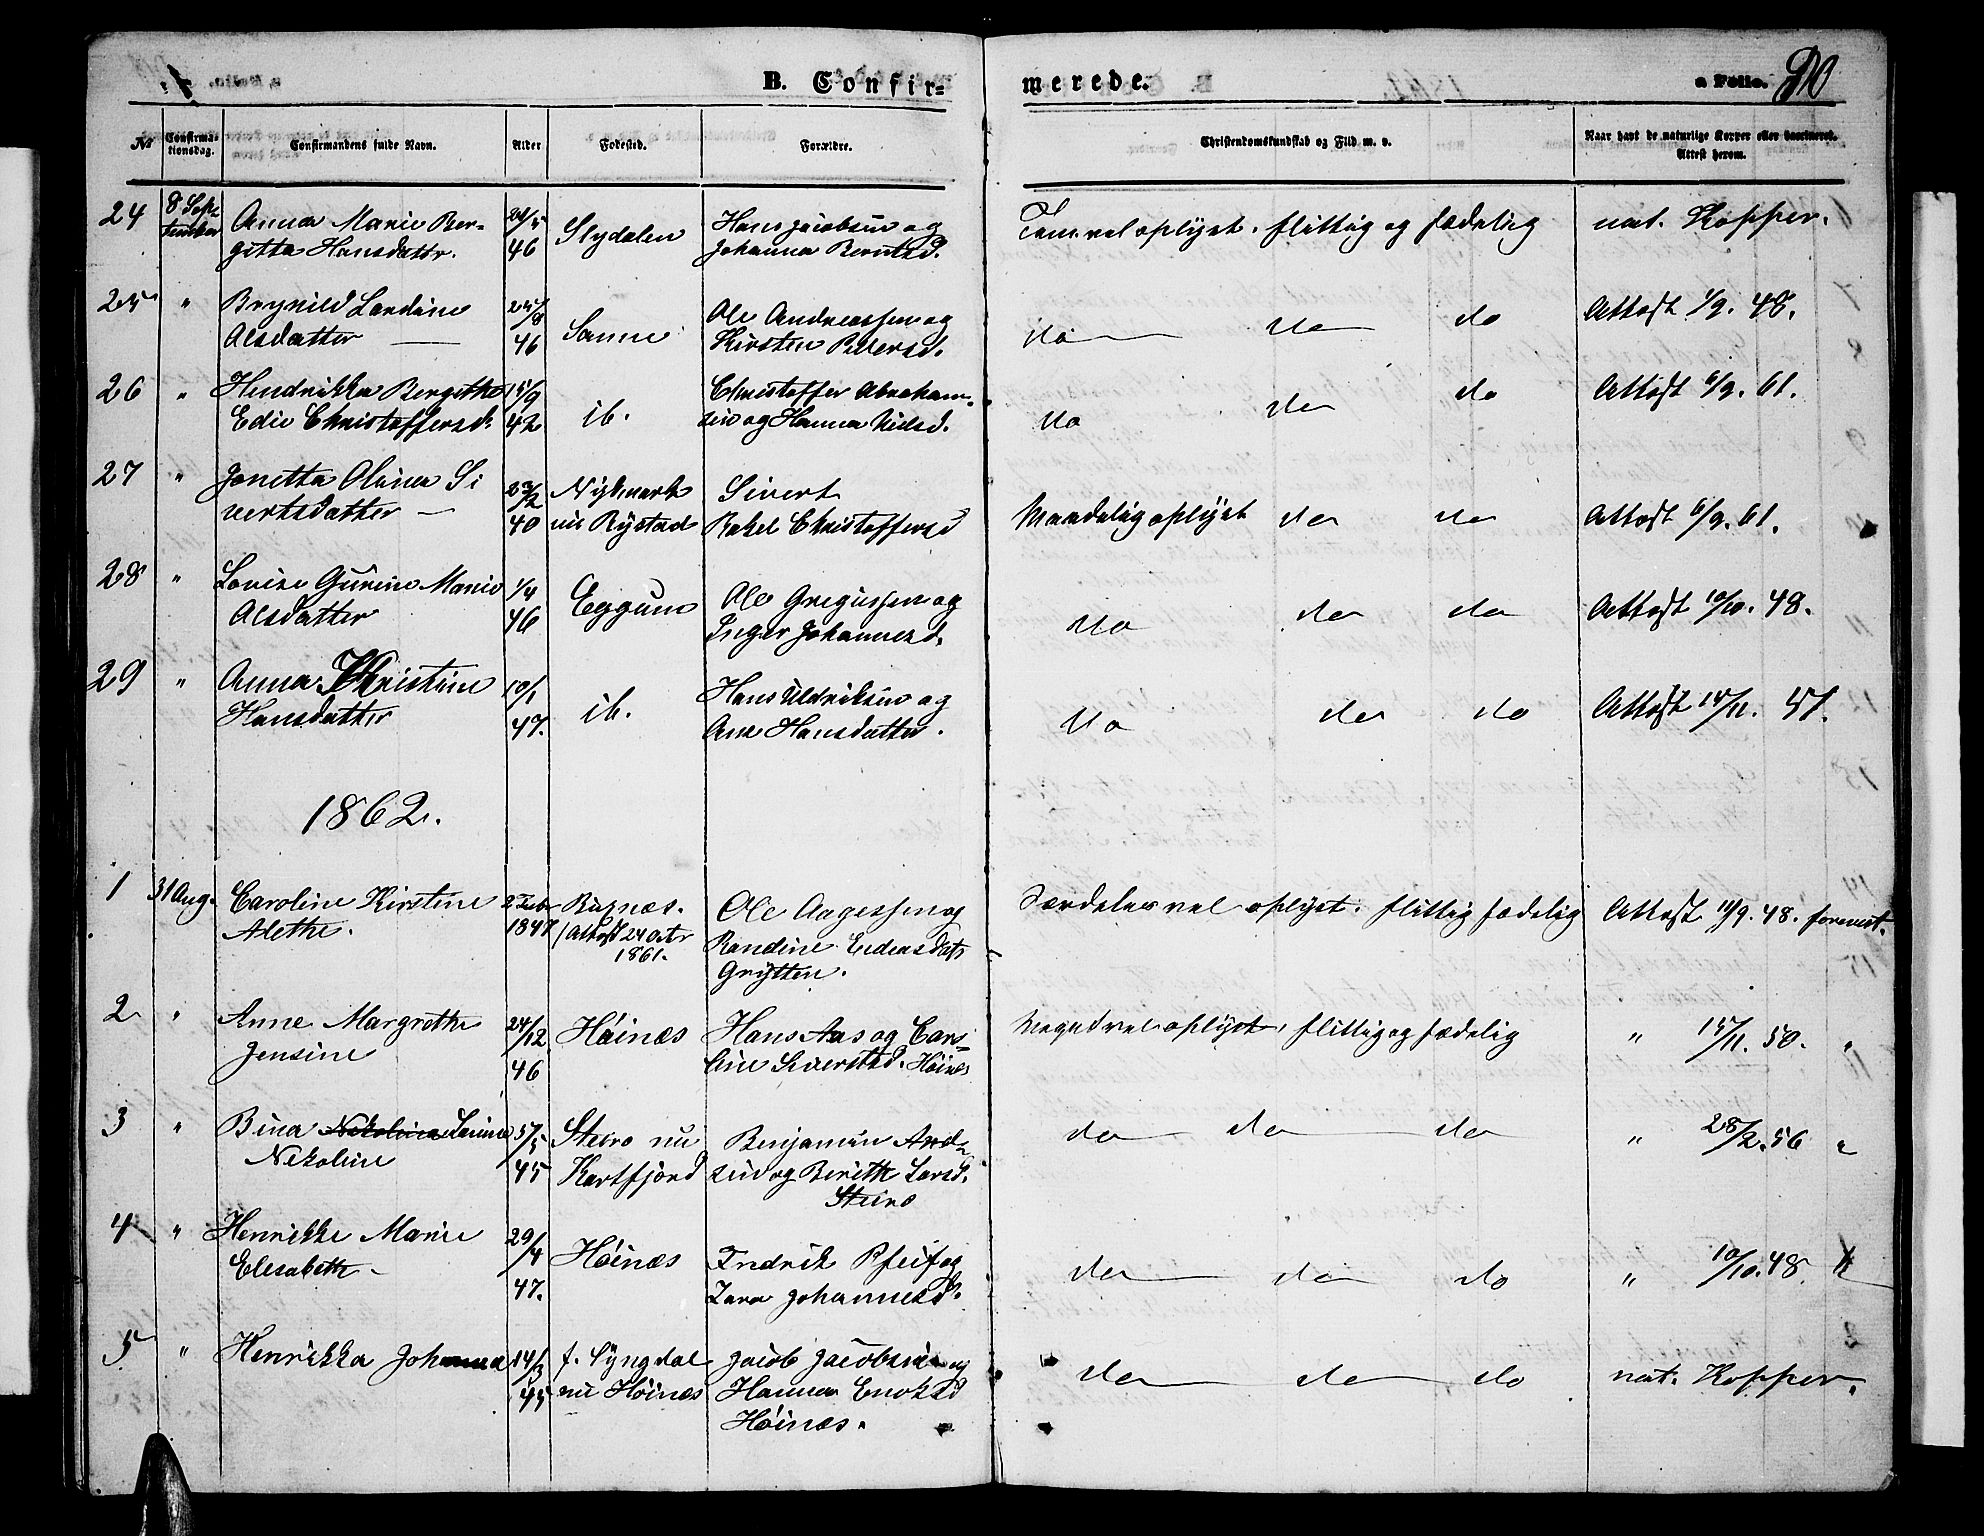 B. Confir=
merede.
a Folio. 90
No
Confirma-
tionsdag.
Confirmandens fulde Navn.
Alder
Fødested.
Forældre.
Christendomskundskab og Flid m. v.
Naar havt de naturlige Kopper eller vaccineret.
Attest herom.
24 8 Sep-
tember Anna Marie Ber-
gitta Hansdattr. 46 Slydalen Hans Jacobsen og
Johanna Berntsd. Temvel oplyst. flittig og sædelig nat. Kopper.
25 " Brynild Lardine
Olsdatter 25/8
46 Sanne Ole Andreassen og
Kirsten Pedersd. do do do Attest 1/9. 48.
26 " Hendrikka Bergitha
Edie Christoffersd. 15/9
42 ib. Christoffer Abraham-
sen og Hanna Nielsd. do do do Attest 6/9. 61.
27 " Jonetta Olina Si
vertsdatter 23/2
40 Nykmark
nu Rystad Sivert
Rakel Christoffersd Maadelig oplyst do do Attest 6/9. 61.
28 " Lovise Gurine Marie
Olsdatter 1/4
46 Eggum Ole Gregussen og
Inger Johannesd. do do do Attest 10/10. 48.
29 " Anna Kristine
Hansdatter 10/1
47. ib. Hans Uldriksen og
Ane Hansdatter. do do do Attest 14/11. 51.
1862.
1 31 Aug. Caroline Kirstine
Alethe. 2 Febr
1847 Bugnæs.
(Attest 24 Octr
1861. Ole Aagessen og
Randine Endensdatr
Grytten. Særdeles vel oplyst. flittig sædelig Attest 11/9. 48. forevist.
2 " Anne Margrethe
Jensine 24/12.
46 Höinæs Hans Aas og Caro-
line Siverstsd. Höinæs Meget vel oplyst, flittig og sædelig " 15/11. 50. "
3 " Bina Nikolina Larine
Nikoline 5/5
45 Steiro nu
Kartfjord Benjamin And-
sen og Berith Larsd.
Steiro do do do " 28/2. 56 "
4 " Henrikke Marie
Elesabeth 29/4
47. Höinæs Fredrik Pfeif og
Zara Johannesd. do do do " 10/10. 48. "
5 " Henrikka Johanna 14/3
45 f. Syngdal
nu Höinæs Jacob Jacobsen og
Hanna Enoksd
Höinæs. do do do nat. Kopper.